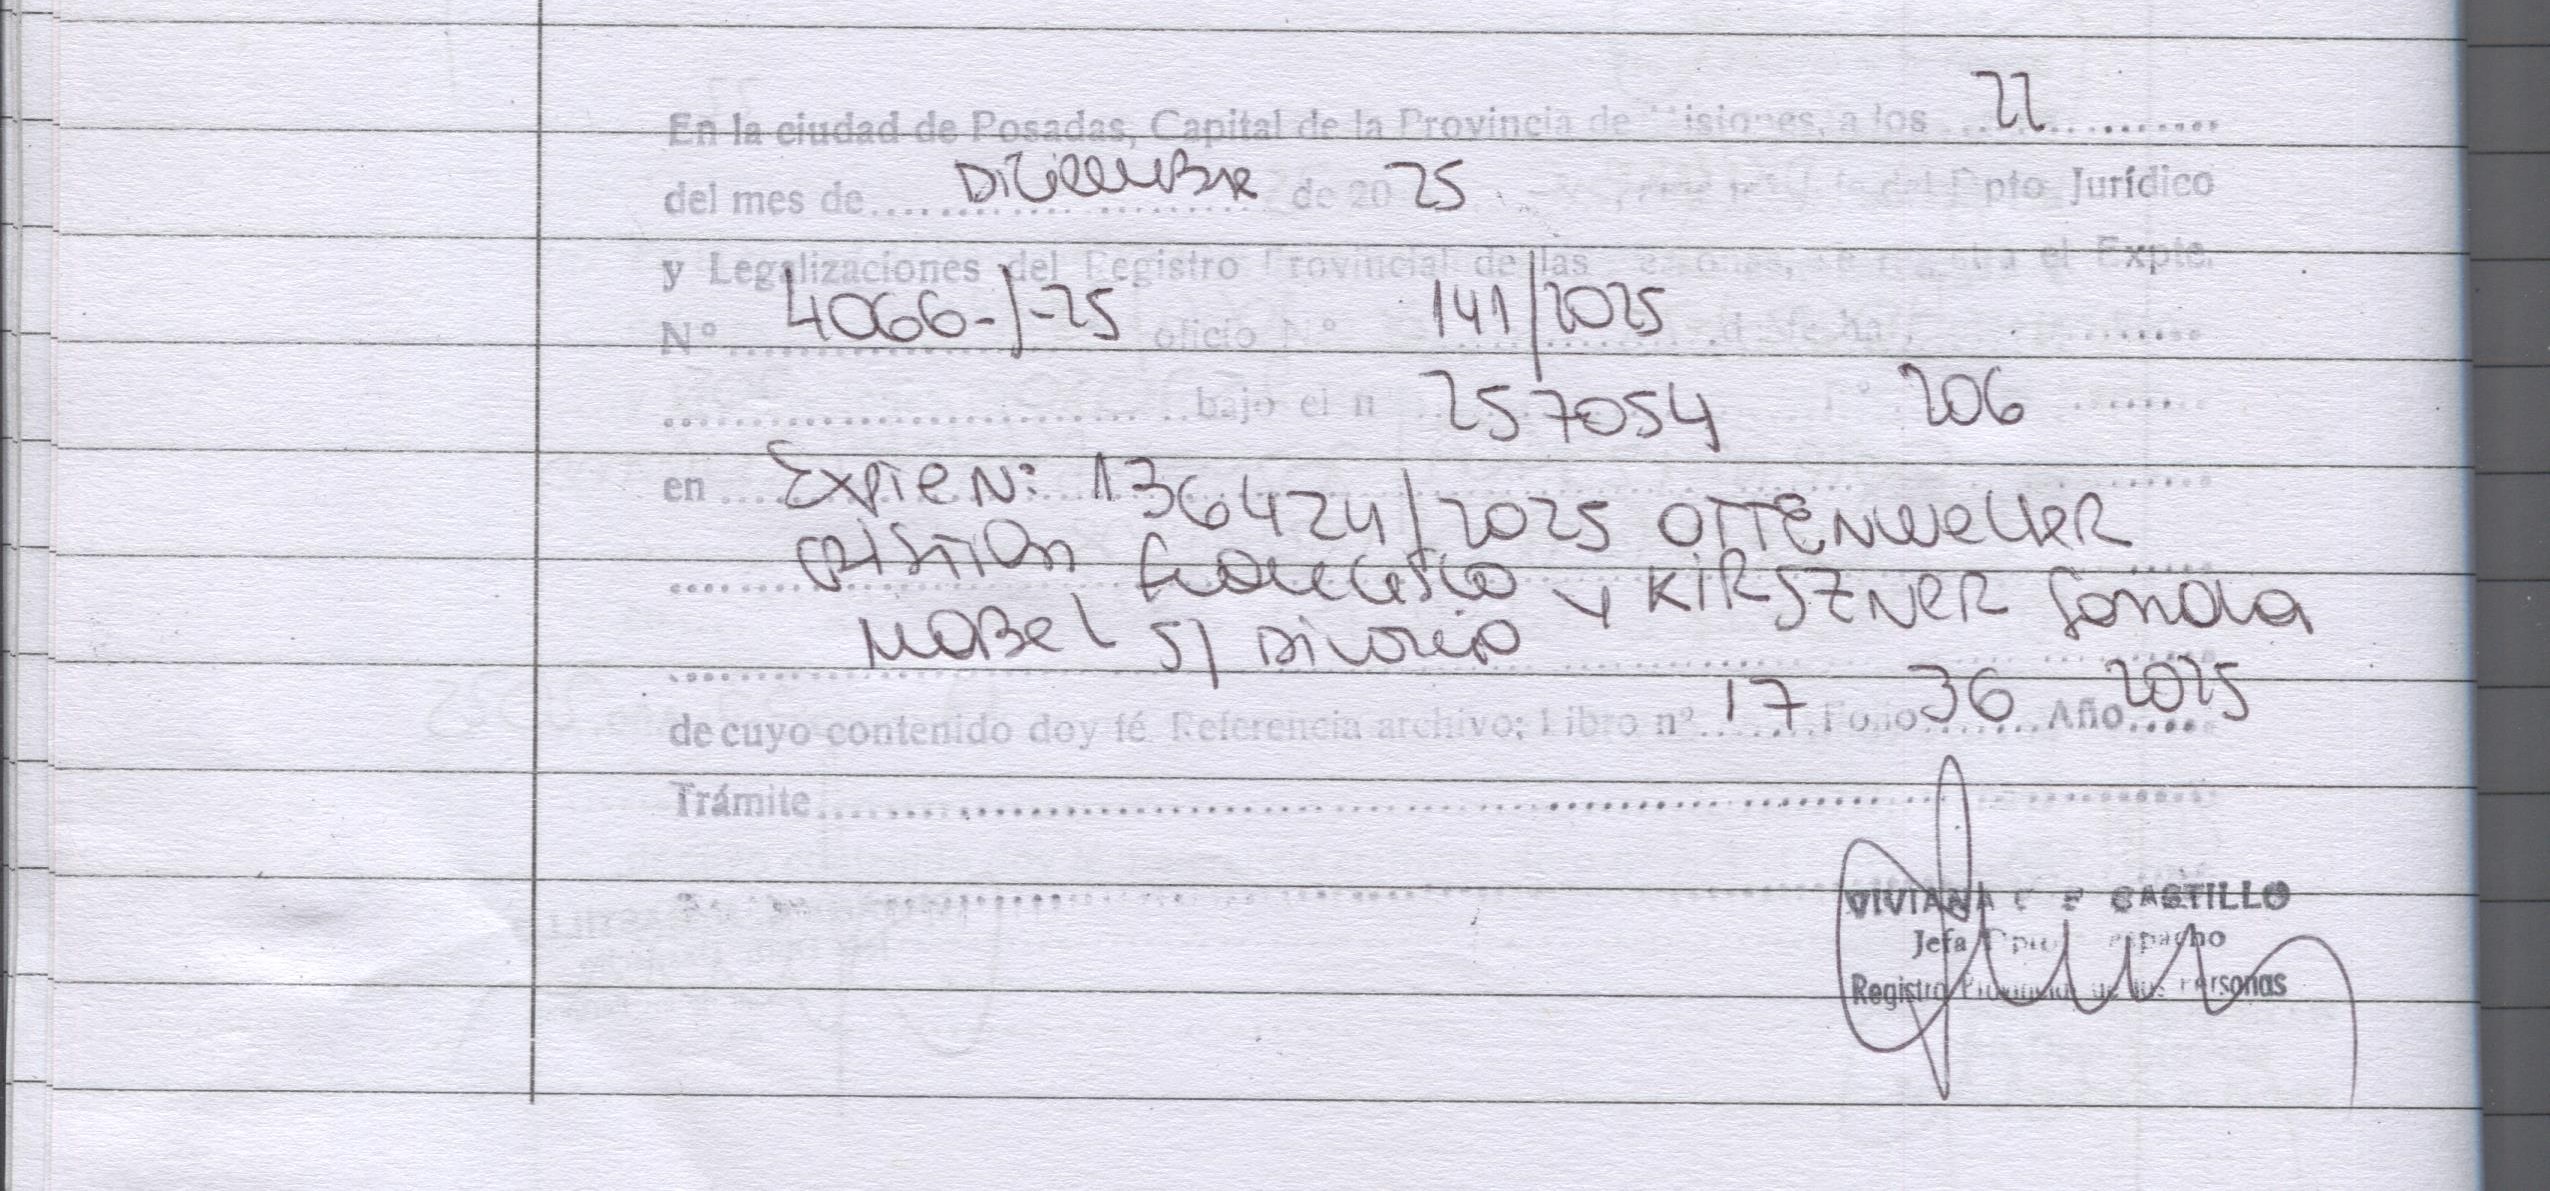 En la ciudad de Posadas, Capital de la Provincia de Misiones, a los 22
del mes de Diciembre de 2025 del Dpto Jurídico
y Legalizaciones del Registro Provincial de las Personas, se registra el Expte.
Nº 4066-J-25 oficio Nº 141/2025 de fecha
bajo el nº 257054 Fº 206
en Expte Nº: 136424/2025 OTTENWELLER
CRISTIAN Francisco y KIRSZNER Sandra
MABEL S/ Divorcio
de cuyo contenido doy fé Referencia archivo; Libro nº 17 Folio 36 Año 2025
Trámite
VIVIANA CASTILLO
Jefa Dpto Despacho
Registro Provincial de las Personas